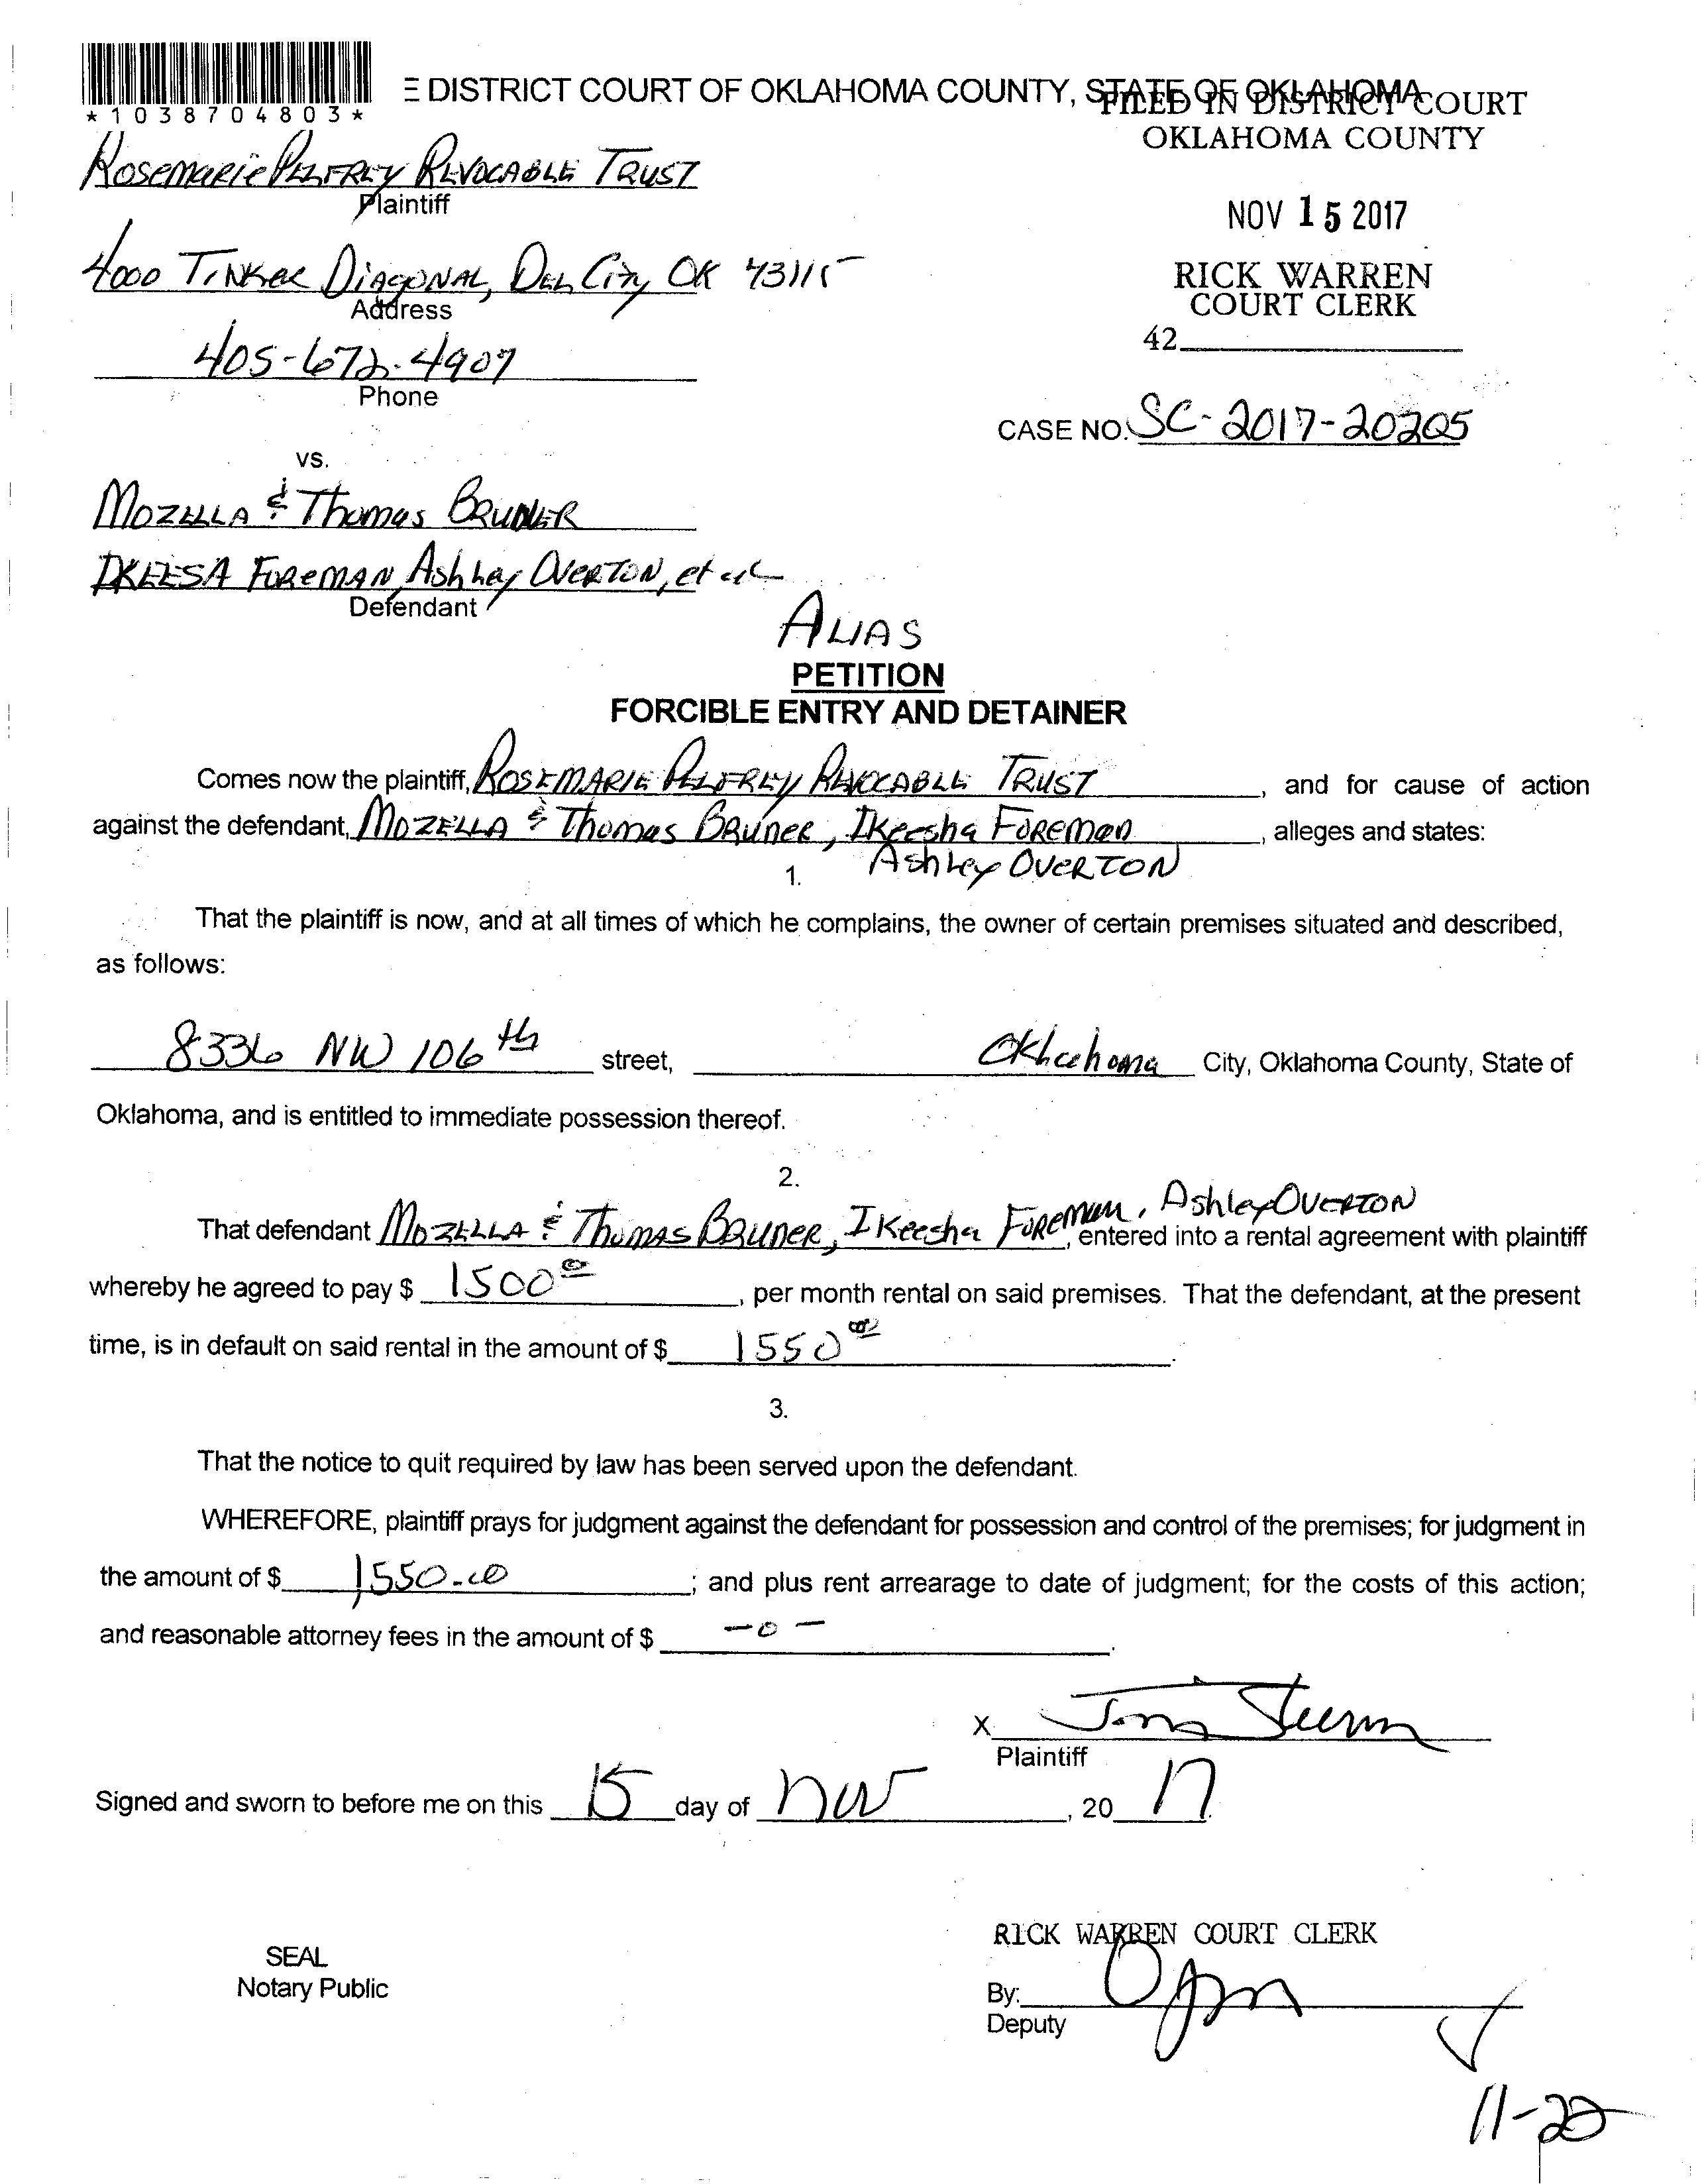 *1038704803*
E DISTRICT COURT OF OKLAHOMA COUNTY, STATE OF OKLAHOMA
FILED IN DISTRICT COURT
OKLAHOMA COUNTY
Rosemarie Pelfrey Revocable Trust
Plaintiff
NOV 15 2017
4000 Tinker Diagonal, Del City OK 73115
Address
RICK WARREN
COURT CLERK
42
405-672-4907
Phone
CASE NO. SC-2017-20205
vs.
Mozella & Thomas Bruner
IKEESA Foreman, Ashley Overton, et al
Defendant
Alias
PETITION
FORCIBLE ENTRY AND DETAINER
Comes now the plaintiff, Rosemarie Pelfrey Revocable Trust, and for cause of action
against the defendant, Mozella & Thomas Bruner, Ikeesha Foreman, alleges and states:
Ashley Overton
1.
That the plaintiff is now, and at all times of which he complains, the owner of certain premises situated and described,
as follows:
8336 NW 106th street, Oklahoma City, Oklahoma County, State of
Oklahoma, and is entitled to immediate possession thereof.
2.
That defendant Mozella & Thomas Bruner, Ikeesha Foreman, Ashley Overton, entered into a rental agreement with plaintiff
whereby he agreed to pay $ 1500 00, per month rental on said premises. That the defendant, at the present
time, is in default on said rental in the amount of $ 1550 00.
3.
That the notice to quit required by law has been served upon the defendant.
WHEREFORE, plaintiff prays for judgment against the defendant for possession and control of the premises; for judgment in
the amount of $ 1550.00; and plus rent arrearage to date of judgment; for the costs of this action;
and reasonable attorney fees in the amount of $ -0-.
X
Plaintiff
Signed and sworn to before me on this 15 day of Nov, 20 17.
RICK WARREN COURT CLERK
SEAL
Notary Public
By:
Deputy
11-22